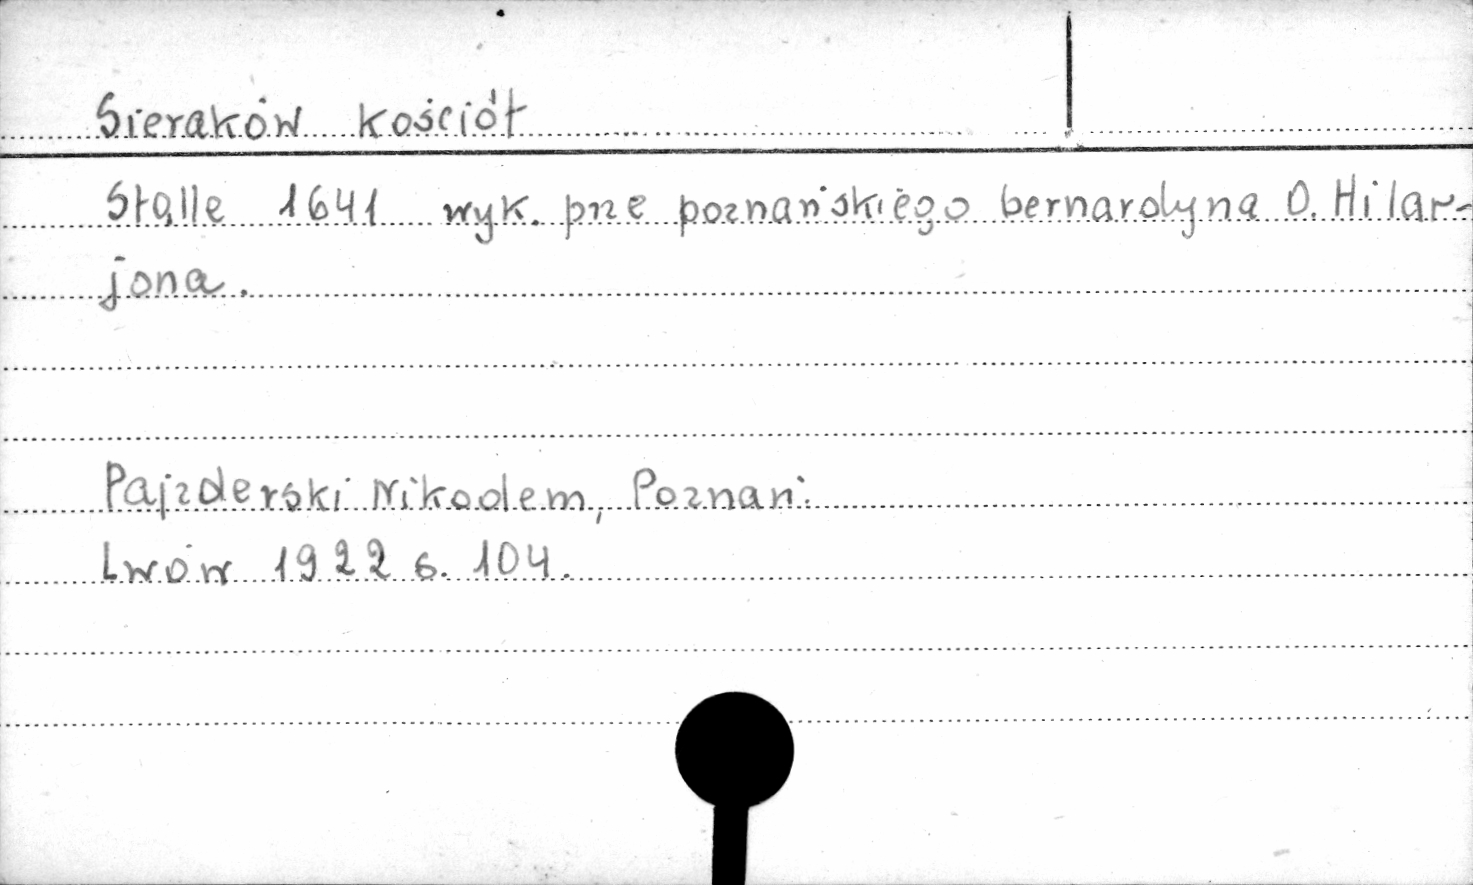 Sieraków kościół
Stalle 1641 wyk. prze poznańskiego bernardyna O. Hilar-
jona.
Pajzderski Nikodem, Poznań.
Lwów 1922 s. 104.